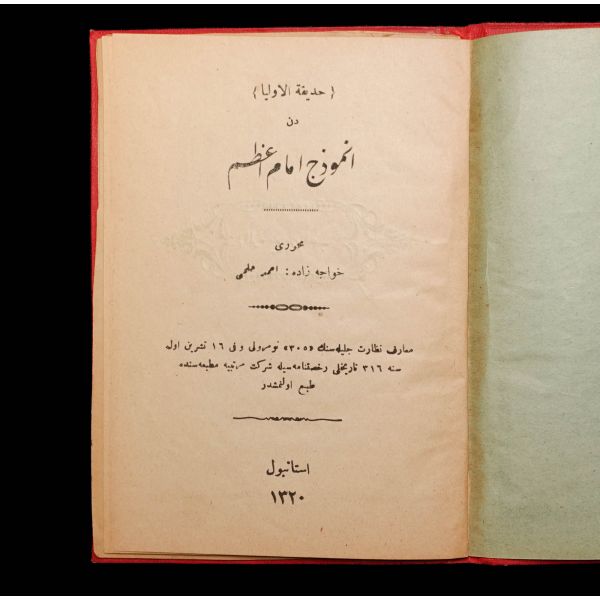 ﴿ حديقة الاوليا ﴾
دن
انموذج امام اعظم
محرری
خواجه زاده : احمد حلمی
معارف نظارت جليله‌سنك «٣٠٥» نومرولی و فی ١٦ تشرين اول
سنه ٣١٦ تاريخلی رخصتنامه‌سيله شركت مرتبيه مطبعه‌سنده
طبع اولنمشدر
استانبول
١٣٢٠